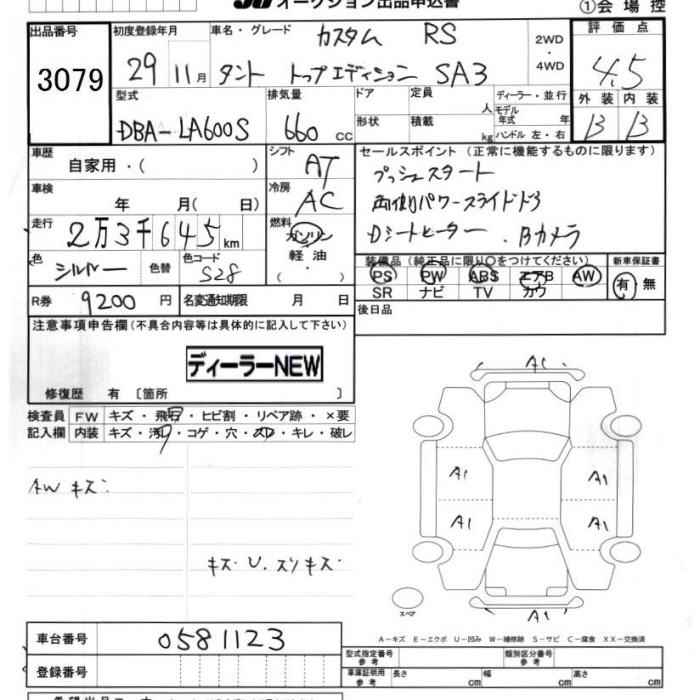 JU オークション出品申込書
①会場控
出品番号
3079
初度登録年月
29 11月
車名・グレード
カスタム RS
タント トップエディション SA3
2WD
・
4WD
評価点
4.5
外装 内装
B B
型式
DBA-LA600S
排気量
660 cc
ドア
形状
定員 人
積載 kg
ディーラー・並行
モデル年式 年
ハンドル 左・右
車歴
自家用・( )
シフト
AT
車検
年 月( 日)
冷房
AC
走行
2万3千645km
燃料
ガソリン
軽油
・
( )
色
シルバー
色替
色コード
S28
R券
9200円
名変通知期限 月 日
セールスポイント (正常に機能するものに限ります)
プッシュスタート
両側パワースライドドア
Dシートヒーター . Bカメラ
装備品 (純正品に限り○をつけてください)
PS PW ABS エアB AW
SR ナビ TV カワ
新車保証書
有・無
後日品
注意事項申告欄(不具合内容等は具体的に記入して下さい)
ディーラーNEW
修復歴 有 〔箇所 〕
検査員
記入欄
FW キズ・飛石・ヒビ割・リペア跡・×要
内装 キズ・汚れ・コゲ・穴・スレ・キレ・破レ
AW キズ.
キズ. U. スリキズ.
A1
A1 A1
A1 A1
A1
スペア
A−キズ E−エクボ U−凹み W−補修跡 S−サビ C−腐食 XX−交換済
車台番号
0581123
登録番号
型式指定番号
参考
類別区分番号
参考
車庫証明用
参考
長さ cm 幅 cm 高さ cm